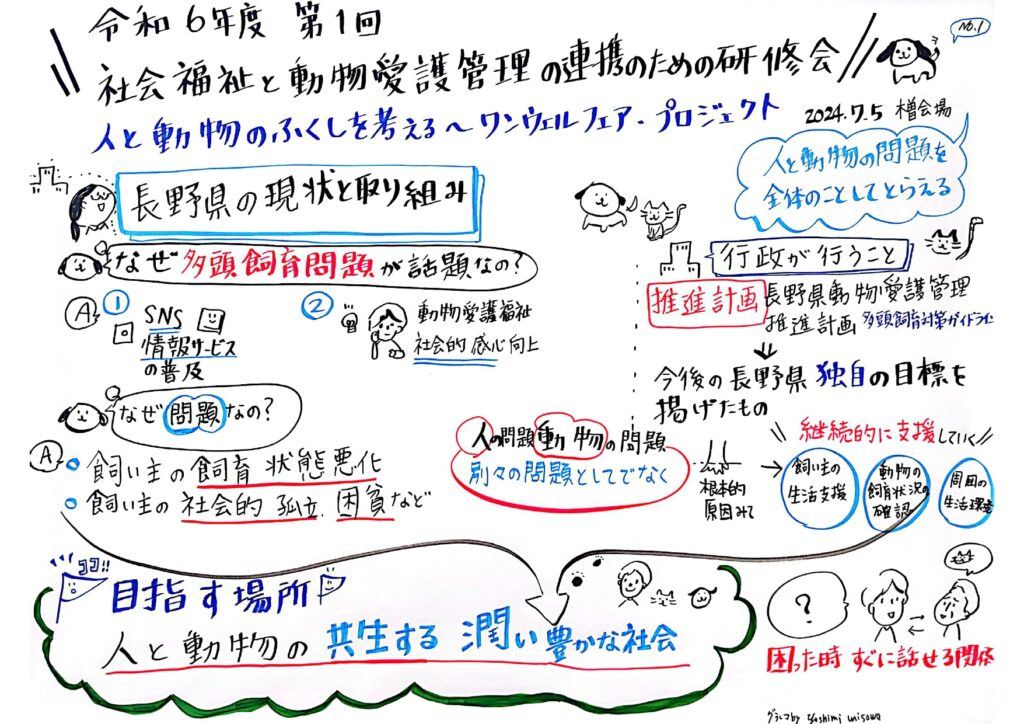 令和6年度 第1回
No.1
社会福祉と動物愛護管理の連携のための研修会
人と動物のふくしを考える〜ワンウェルフェア・プロジェクト
2024.7.5 檀会場
人と動物の問題を
全体のこととしてとらえる
長野県の現状と取り組み
なぜ多頭飼育問題が話題なの？
A
① SNS
情報サービス
の普及
② 動物愛護福祉
社会的感心向上
行政が行うこと
推進計画 長野県動物愛護管理
推進計画 多頭飼育対策ガイドライン
今後の長野県独自の目標を
掲げたもの
なぜ問題なの？
A
飼い主の飼育状態悪化
飼い主の社会的孤立、困貧など
人の問題動物の問題
別々の問題としてでなく
根本的
原因みて
継続的に支援していく
飼い主の
生活支援
動物の
飼育状況の
確認
周囲の
生活環境
ココ!!
目指す場所
人と動物の共生する潤い豊かな社会
?
困った時すぐに話せる関係
グラレコby yoshimi